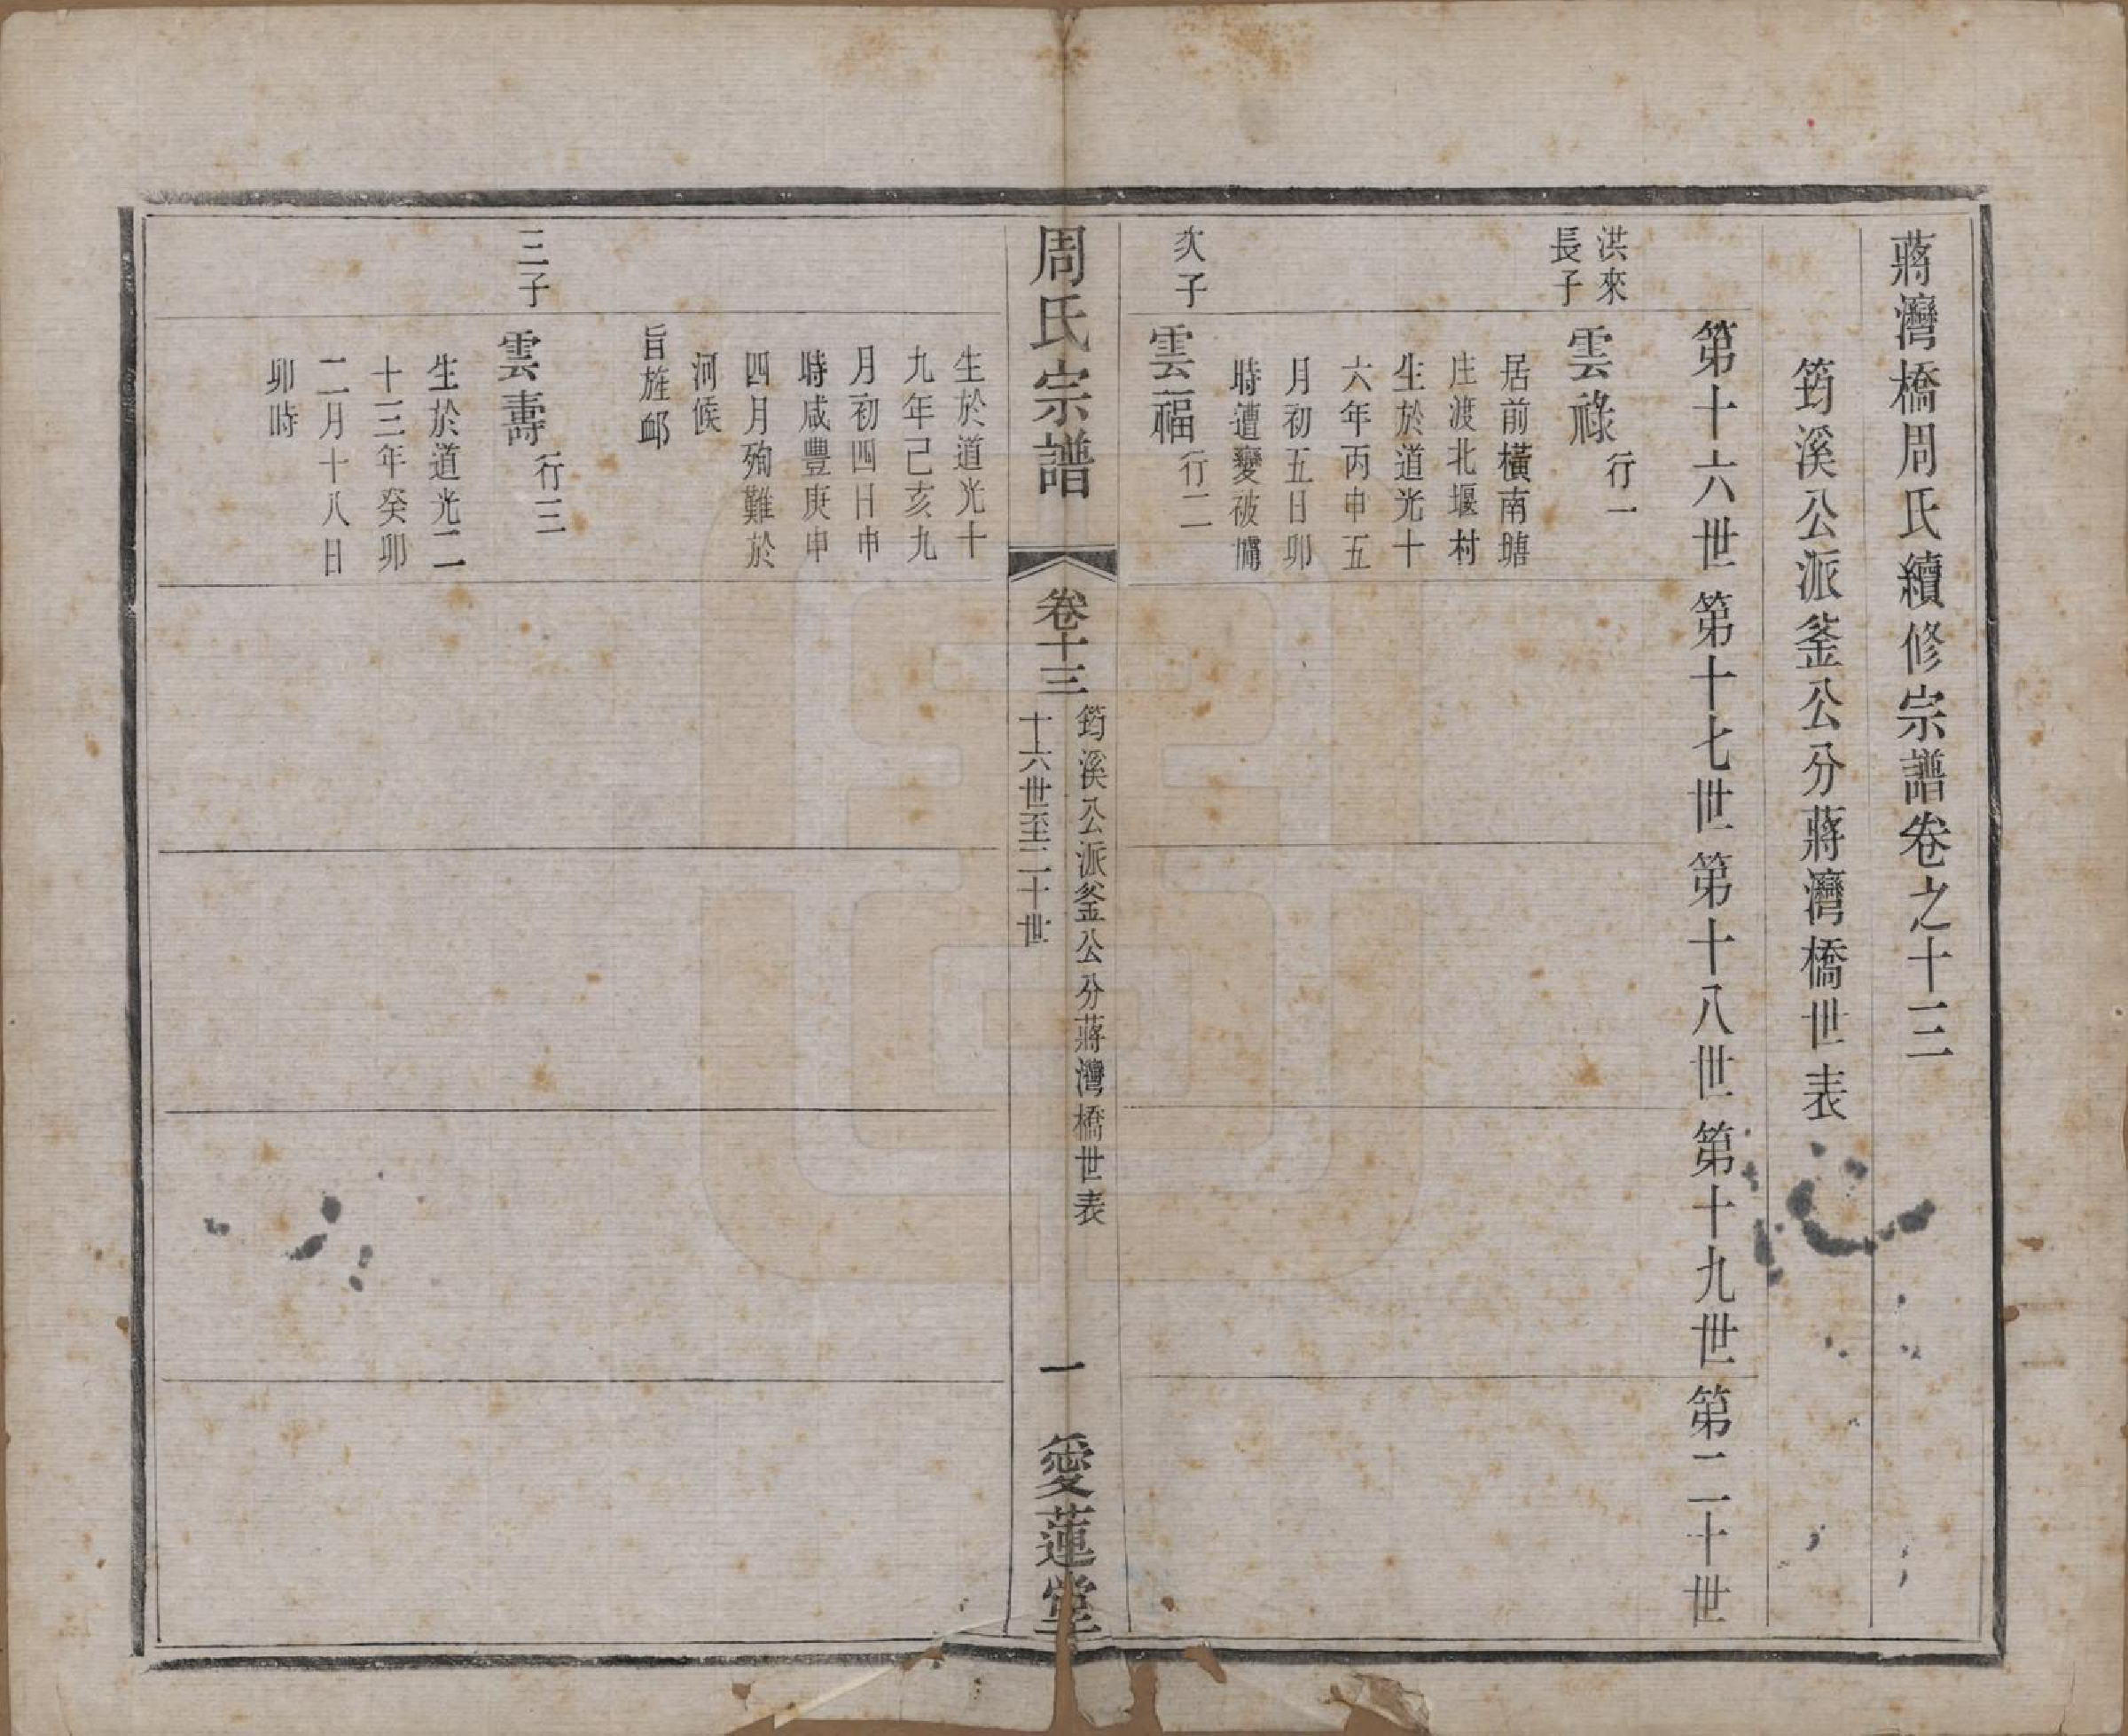 蔣灣橋周氏續修宗譜卷之十三
筠溪公派釜公分蔣灣橋世表
第十六世 第十七世 第十八世 第十九世 第二十世
洪來
長子
雲祿 行一
居前橫南塘
庄渡北堰村
生於道光十
六年丙申五
月初五日卯
時遭變被擄
次子
雲福 行二
周氏宗譜 卷十三 筠溪公派釜公分蔣灣橋世表
十六世至二十世
一 愛蓮堂
生於道光十
九年己亥九
月初四日申
時咸豐庚申
四月殉難於
河候
旨旌卹
三子
雲壽 行三
生於道光二
十三年癸卯
二月十八日
卯時